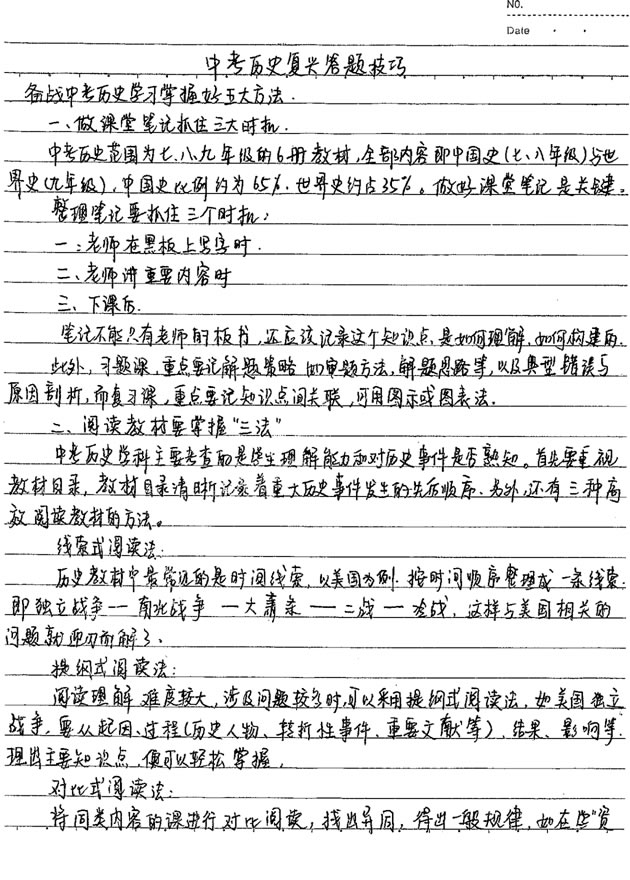 NO.
Date
中考历史复兴答题技巧
备战中考历史学习掌握好五大方法.
一、做课堂笔记抓住三大时机.
中考历史范围为七.八.九年级的6册教材,全部内容即中国史(七、八年级)与世
界史(九年级),中国史比例约为65%.世界史约占35%。做好课堂笔记是关键。
整理笔记要抓住三个时机:
一:老师在黑板上写字时.
二、老师讲重要内容时
三、下课后.
笔记不能只有老师的板书,还应该记录这个知识点.是如何理解,如何构建的.
此外,习题课,重点要记解题策略 如审题方法,解题思路等,以及典型错误与
原因剖析,而复习课,重点要记知识点间关联,可用图示或图表法.
二、阅读教材要掌握"三法"
中考历史学科主要考查的是学生理解能力和对历史事件是否熟知。首先要重视
教材目录,教材目录清晰记录着重大历史事件发生的先后顺序.另外,还有三种高
效阅读教材的方法。
线索式阅读法:
历史教材中最常见的是时间线索,以美国为例.按时间顺序整理成一条线索.
即独立战争——南北战争——大萧条——二战——冷战,这样与美国相关的
问题就迎刃而解了、
提纲式阅读法:
阅读理解难度较大,涉及问题较多时,可以采用提纲式阅读法,如美国独立
战争,要从起因、过程(历史人物、转折性事件、重要文献等)、结果、影响等.
理出主要知识点.便可以轻松掌握,
对比式阅读法:
将同类内容的课进行对比阅读,找出异同,得出一般规律,如在些"资